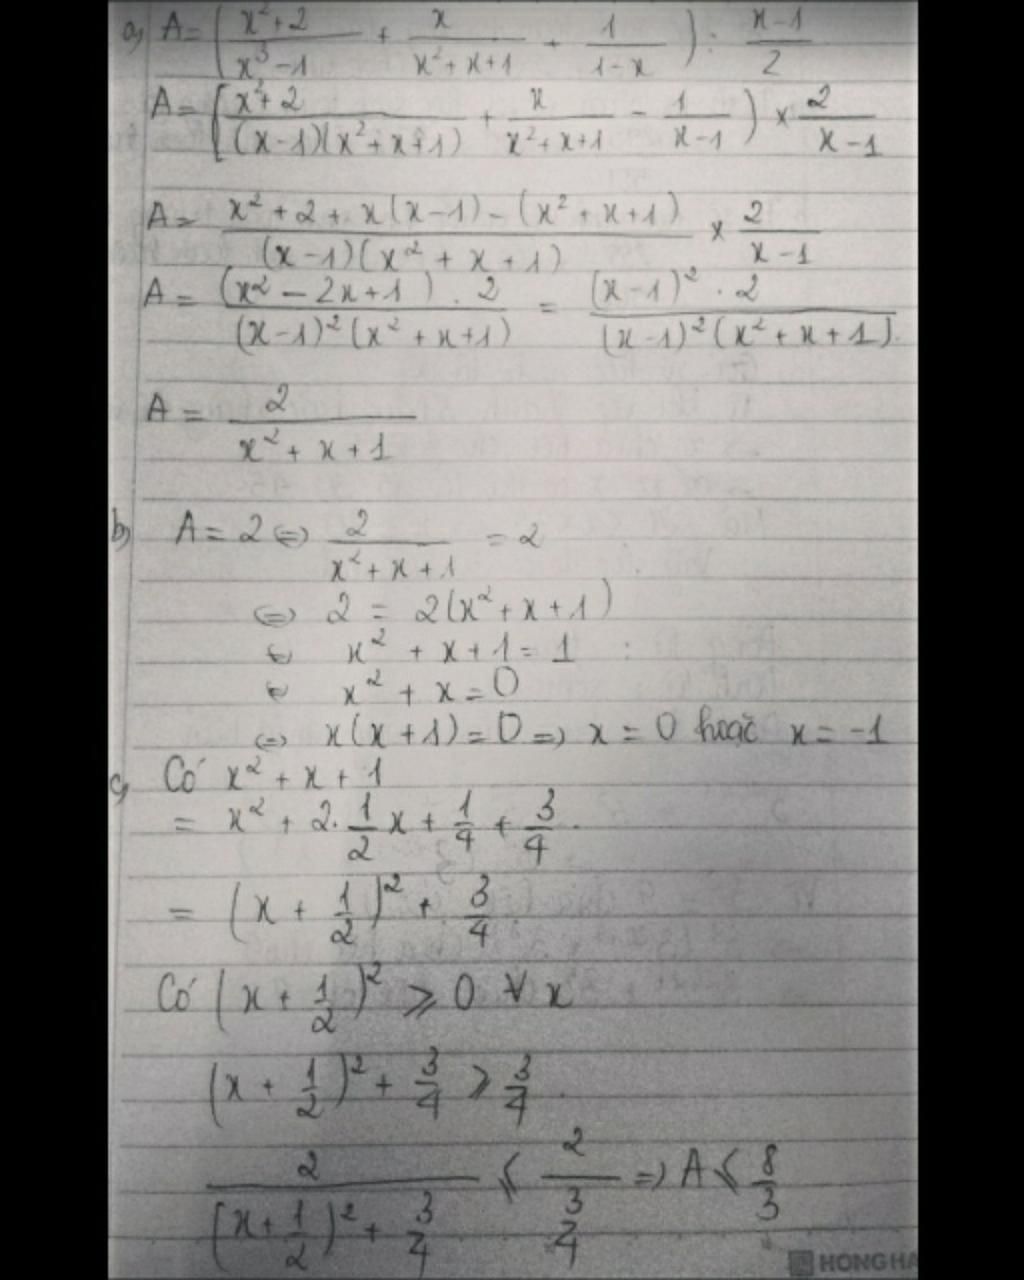 a) A = ( (x² + 2)/(x³ - 1) + x/(x² + x + 1) + 1/(1 - x) ) : (x - 1)/2
A = ( (x² + 2)/((x - 1)(x² + x + 1)) + x/(x² + x + 1) - 1/(x - 1) ) × 2/(x - 1)
A = (x² + 2 + x(x - 1) - (x² + x + 1))/((x - 1)(x² + x + 1)) × 2/(x - 1)
A = ((x² - 2x + 1) . 2)/((x - 1)²(x² + x + 1)) = ((x - 1)² . 2)/((x - 1)²(x² + x + 1))
A = 2/(x² + x + 1)
b) A = 2 ⇔ 2/(x² + x + 1) = 2
⇔ 2 = 2(x² + x + 1)
⇔ x² + x + 1 = 1
⇔ x² + x = 0
⇔ x(x + 1) = 0 ⇒ x = 0 hoặc x = -1
c) Có x² + x + 1
= x² + 2. 1/2 x + 1/4 + 3/4.
= (x + 1/2)² + 3/4.
Có (x + 1/2)² ⩾ 0 ∀ x
(x + 1/2)² + 3/4 ⩾ 3/4.
2/((x + 1/2)² + 3/4) ⩽ 2/(3/4) ⇒ A ⩽ 8/3
HONG HA